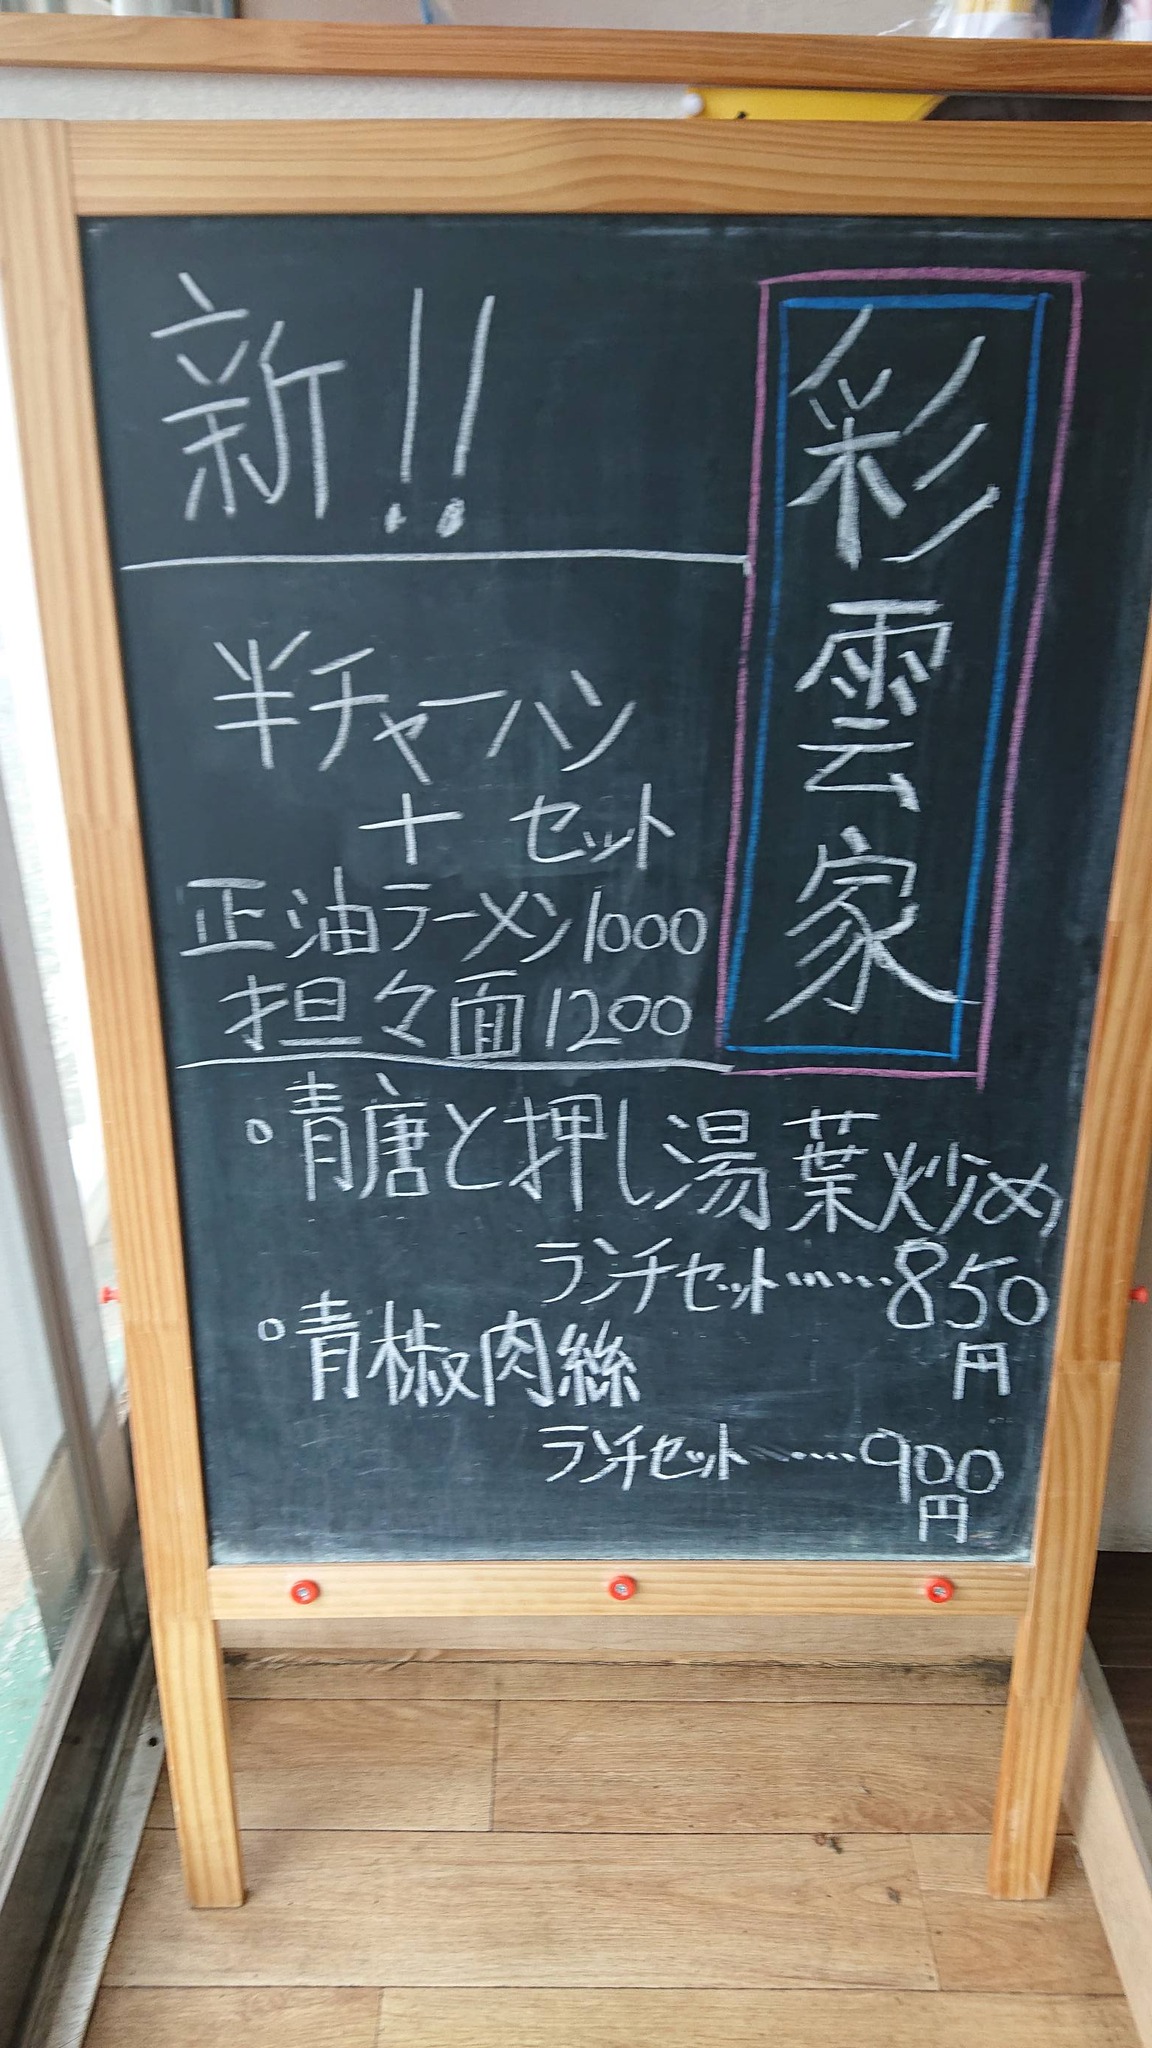 彩雲家
新!!
半チャーハン
+ セット
正油ラーメン1000
担々面1200
°青唐と押し湯葉炒め
ランチセット……850
円
°青椒肉絲
ランチセット……900
円